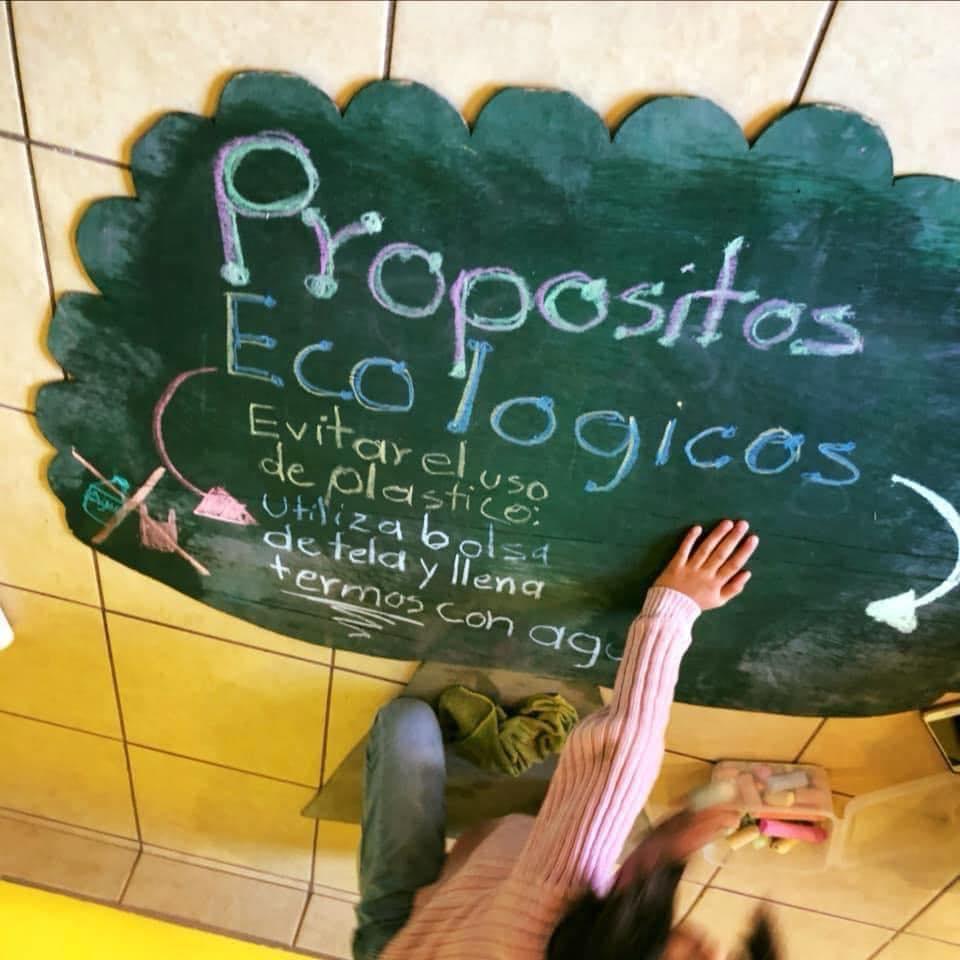 Propositos
Ecologicos
Evitar el uso
de plastico:
Utiliza bolsa
de tela y llena
termos con